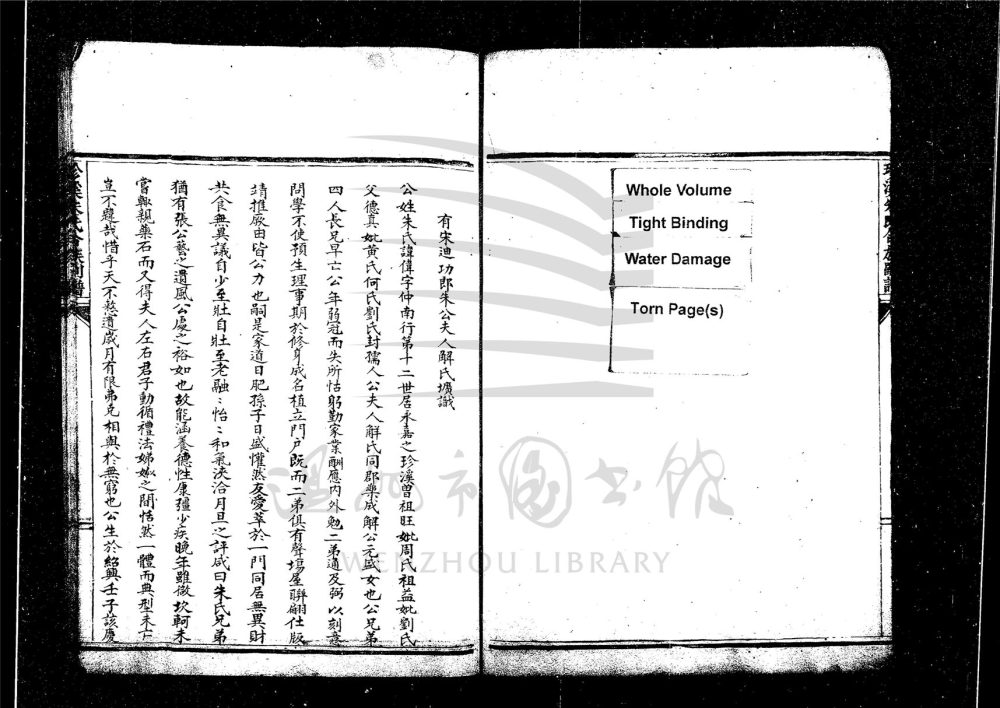 有宋迪功郎朱公夫人解氏壙識
公姓朱氏諱偉字仲南行第十二世居永嘉之珍溪曽祖旺妣周氏祖益妣劉氏
父德真妣黄氏何氏劉氏封孺人公夫人解氏同郡樂成解公元盛女也公兄弟
四人長兄早亡公年弱冠而失所怙躬勤家業酬應内外勉二弟適及弼以刻意
問學不使預生理事期於修身成名植立門户既而二弟俱有聲塲屋聯翩仕版
靖推厥由皆公力也嗣是家道日肥孫子日盛懽然友愛萃於一門同居無異財
共食無異議自少至壯自壯至老融〻怡〻和氣浹洽月旦之評咸曰朱氏兄弟
猶有張公藝之遺風公處之裕如也故能涵養德性康彊少疾晚年雖微坎軻未
嘗輙親藥石而又得夫人左右君子動循禮法娣姒之間恬然一體而典型未亡
豈不韙哉惜乎天不憗遺歲月有限弗克相與於無窮也公生於紹興壬子該慶
珍溪朱氏合族副譜
Whole Volume
Tight Binding
Water Damage
Torn Page(s)
温州市圖書館
WENZHOU LIBRARY